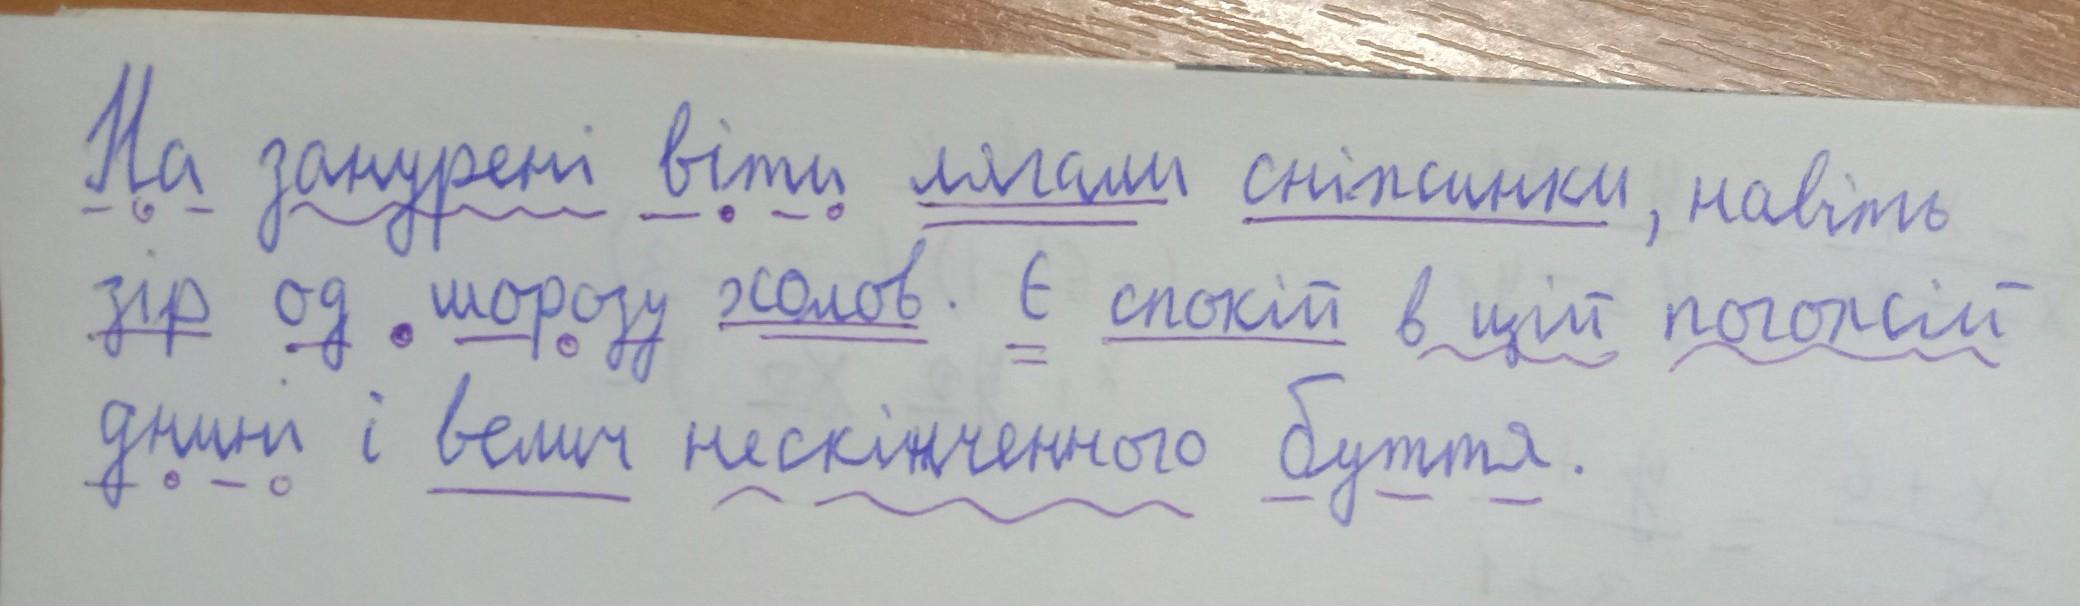 На занурені віти лягали сніжинки, навіть
зір од морозу холов. Є спокій в цій погожій
днині і велич нескінченного буття.